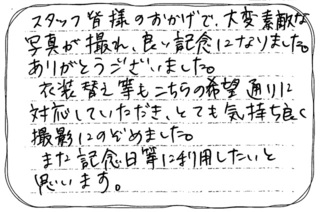 スタッフ皆様のおかげで、大変素敵な
写真が撮れ、良い記念になりました。
ありがとうございました。
衣装替え等もこちらの希望通りに
対応していただき、とても気持ち良く
撮影にのぞめました。
また記念日等に利用したいと
思います。